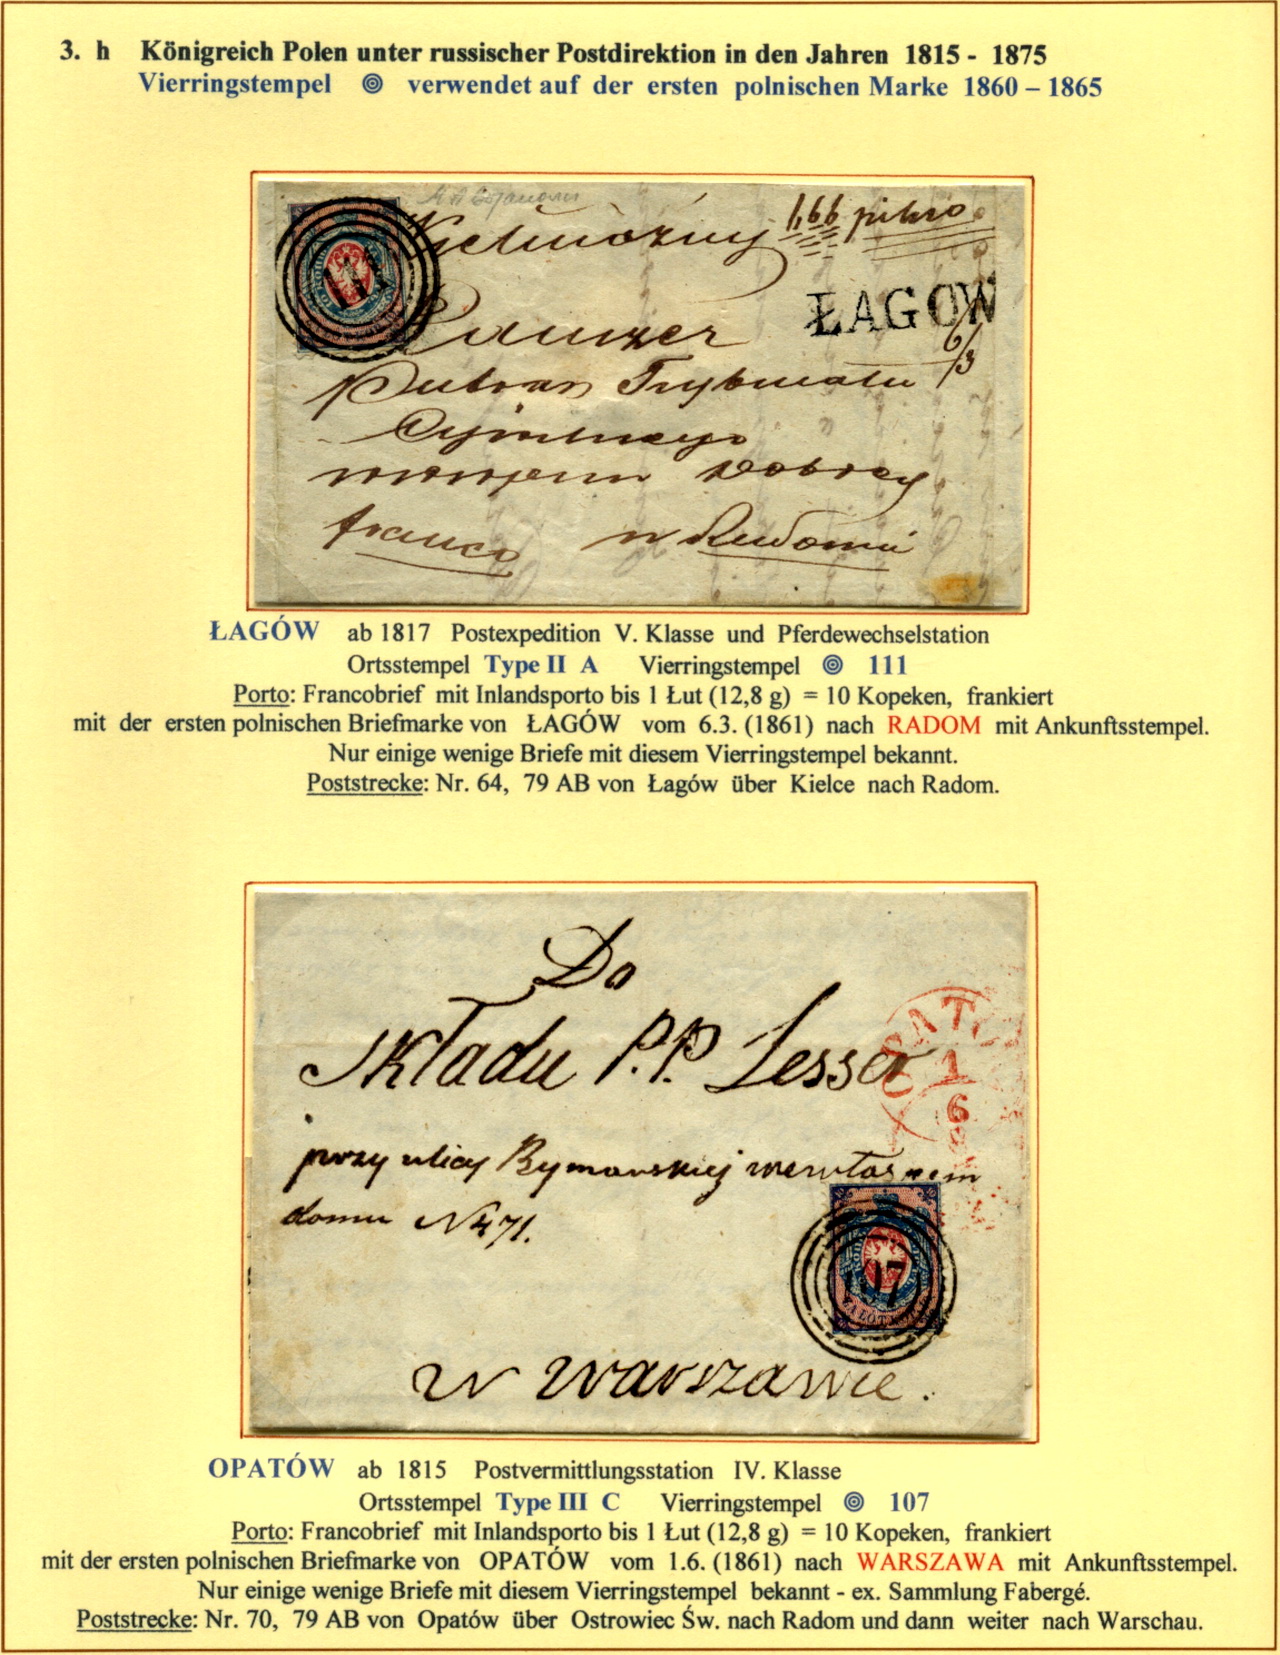 3. h Königreich Polen unter russischer Postdirektion in den Jahren 1815 - 1875
Vierringstempel verwendet auf der ersten polnischen Marke 1860 – 1865
1,66
Wielmożny
ŁAGOW
6/3
111
Trybunału
Cywilnego
Dobrey
franco
w Radomiu
ŁAGÓW ab 1817 Postexpedition V. Klasse und Pferdewechselstation
Ortsstempel Type II A Vierringstempel 111
Porto: Francobrief mit Inlandsporto bis 1 Łut (12,8 g) = 10 Kopeken, frankiert
mit der ersten polnischen Briefmarke von ŁAGÓW vom 6.3. (1861) nach RADOM mit Ankunftsstempel.
Nur einige wenige Briefe mit diesem Vierringstempel bekannt.
Poststrecke: Nr. 64, 79 AB von Łagów über Kielce nach Radom.
Do
Składu P.P. Lesser
1
6
przy ulicy Rymarskiej we własnem
domu N 471.
107
w Warszawie.
OPATÓW ab 1815 Postvermittlungsstation IV. Klasse
Ortsstempel Type III C Vierringstempel 107
Porto: Francobrief mit Inlandsporto bis 1 Łut (12,8 g) = 10 Kopeken, frankiert
mit der ersten polnischen Briefmarke von OPATÓW vom 1.6. (1861) nach WARSZAWA mit Ankunftsstempel.
Nur einige wenige Briefe mit diesem Vierringstempel bekannt - ex. Sammlung Fabergé.
Poststrecke: Nr. 70, 79 AB von Opatów über Ostrowiec Św. nach Radom und dann weiter nach Warschau.